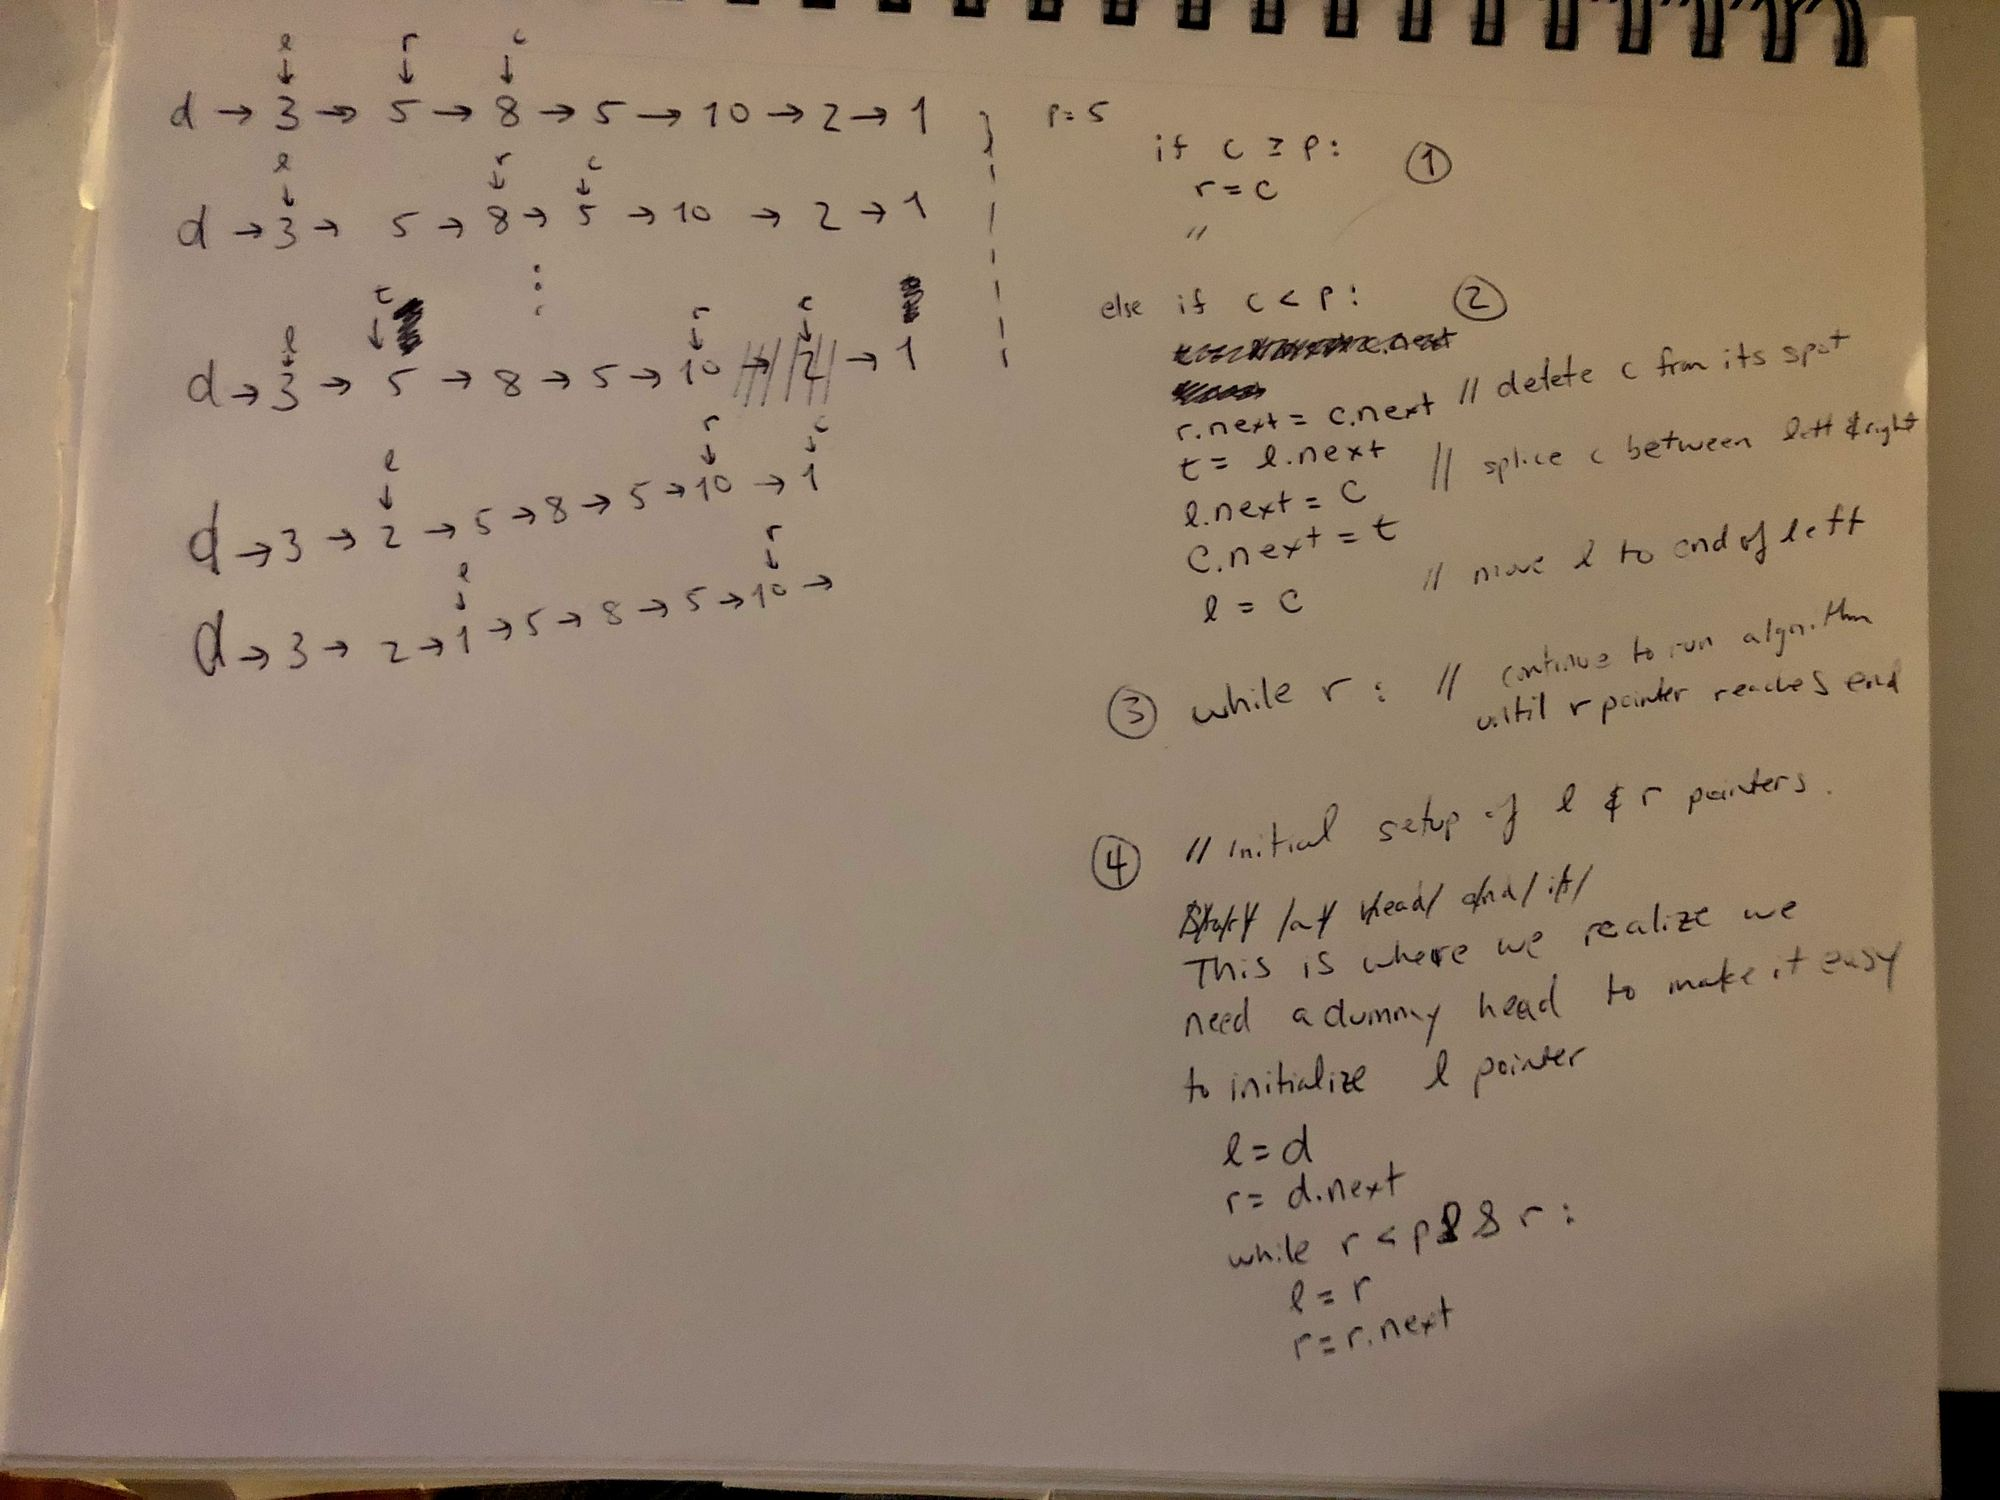 l r c
d → 3 → 5 → 8 → 5 → 10 → 2 → 1
l r c
d → 3 → 5 → 8 → 5 → 10 → 2 → 1
t
l r c
d → 3 → 5 → 8 → 5 → 10 → 2 → 1
l r c
d → 3 → 2 → 5 → 8 → 5 → 10 → 1
l r
d → 3 → 2 → 1 → 5 → 8 → 5 → 10 →
p = 5
if c ≥ p: ①
r = c
"
else if c < p: ②
c.next
r.next = c.next // delete c from its spot
t = l.next // splice c between left & right
l.next = c
c.next = t
l = c // move l to end of left
③ while r : // continue to run algorithm
until r pointer reaches end
④ // initial setup of l & r pointers.
Start at head and if
This is where we realize we
need a dummy head to make it easy
to initialize l pointer
l = d
r = d.next
while r < p && r :
l = r
r = r.next